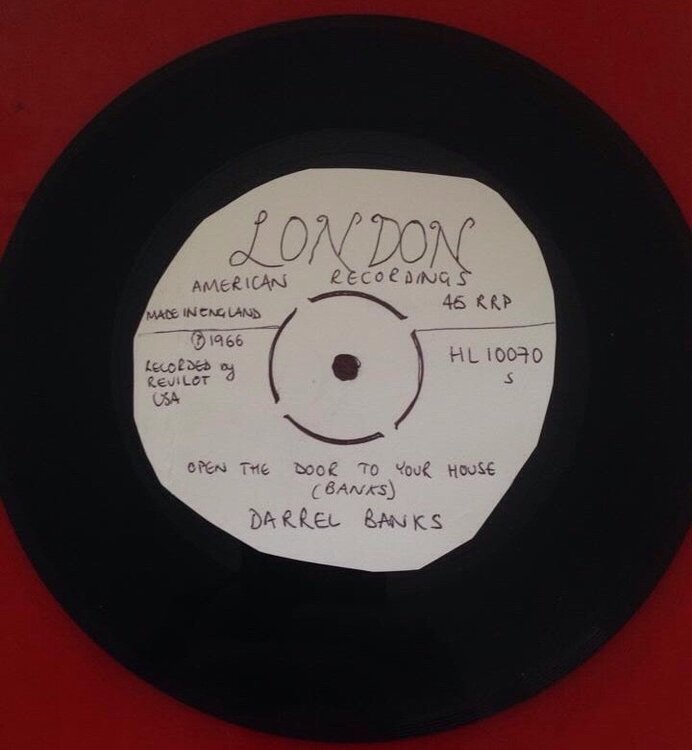 LONDON
AMERICAN RECORDINGS
MADE IN ENGLAND
45 RRP
℗ 1966
RECORDED by
REVILOT
USA
HL 10070
S
OPEN THE DOOR TO YOUR HOUSE
(BANKS)
DARREL BANKS